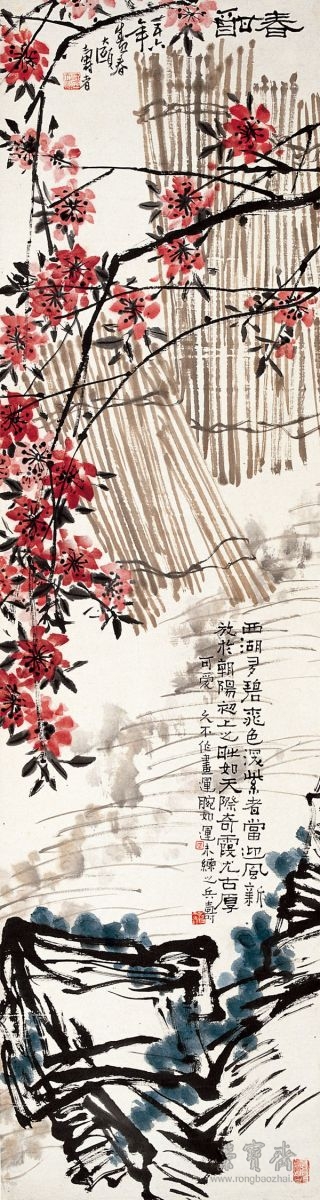 春酣
一九六六年
春
大
壽者
西湖多碧桃色深紫者當迎風新
放於朝陽初上之時如天際奇霞尤古厚
可愛
久不作畫運腕如運未練之兵壽
榮寶齋
www.rongbaozhai.cn